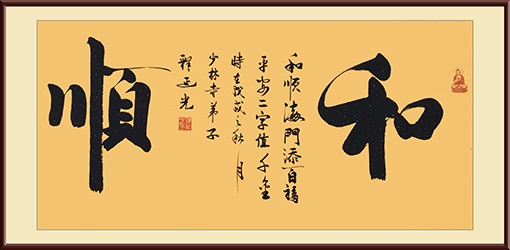 和順
和順滿門添百福
平安二字值千金
時在戊戌之秋月
少林寺弟子
釋延光